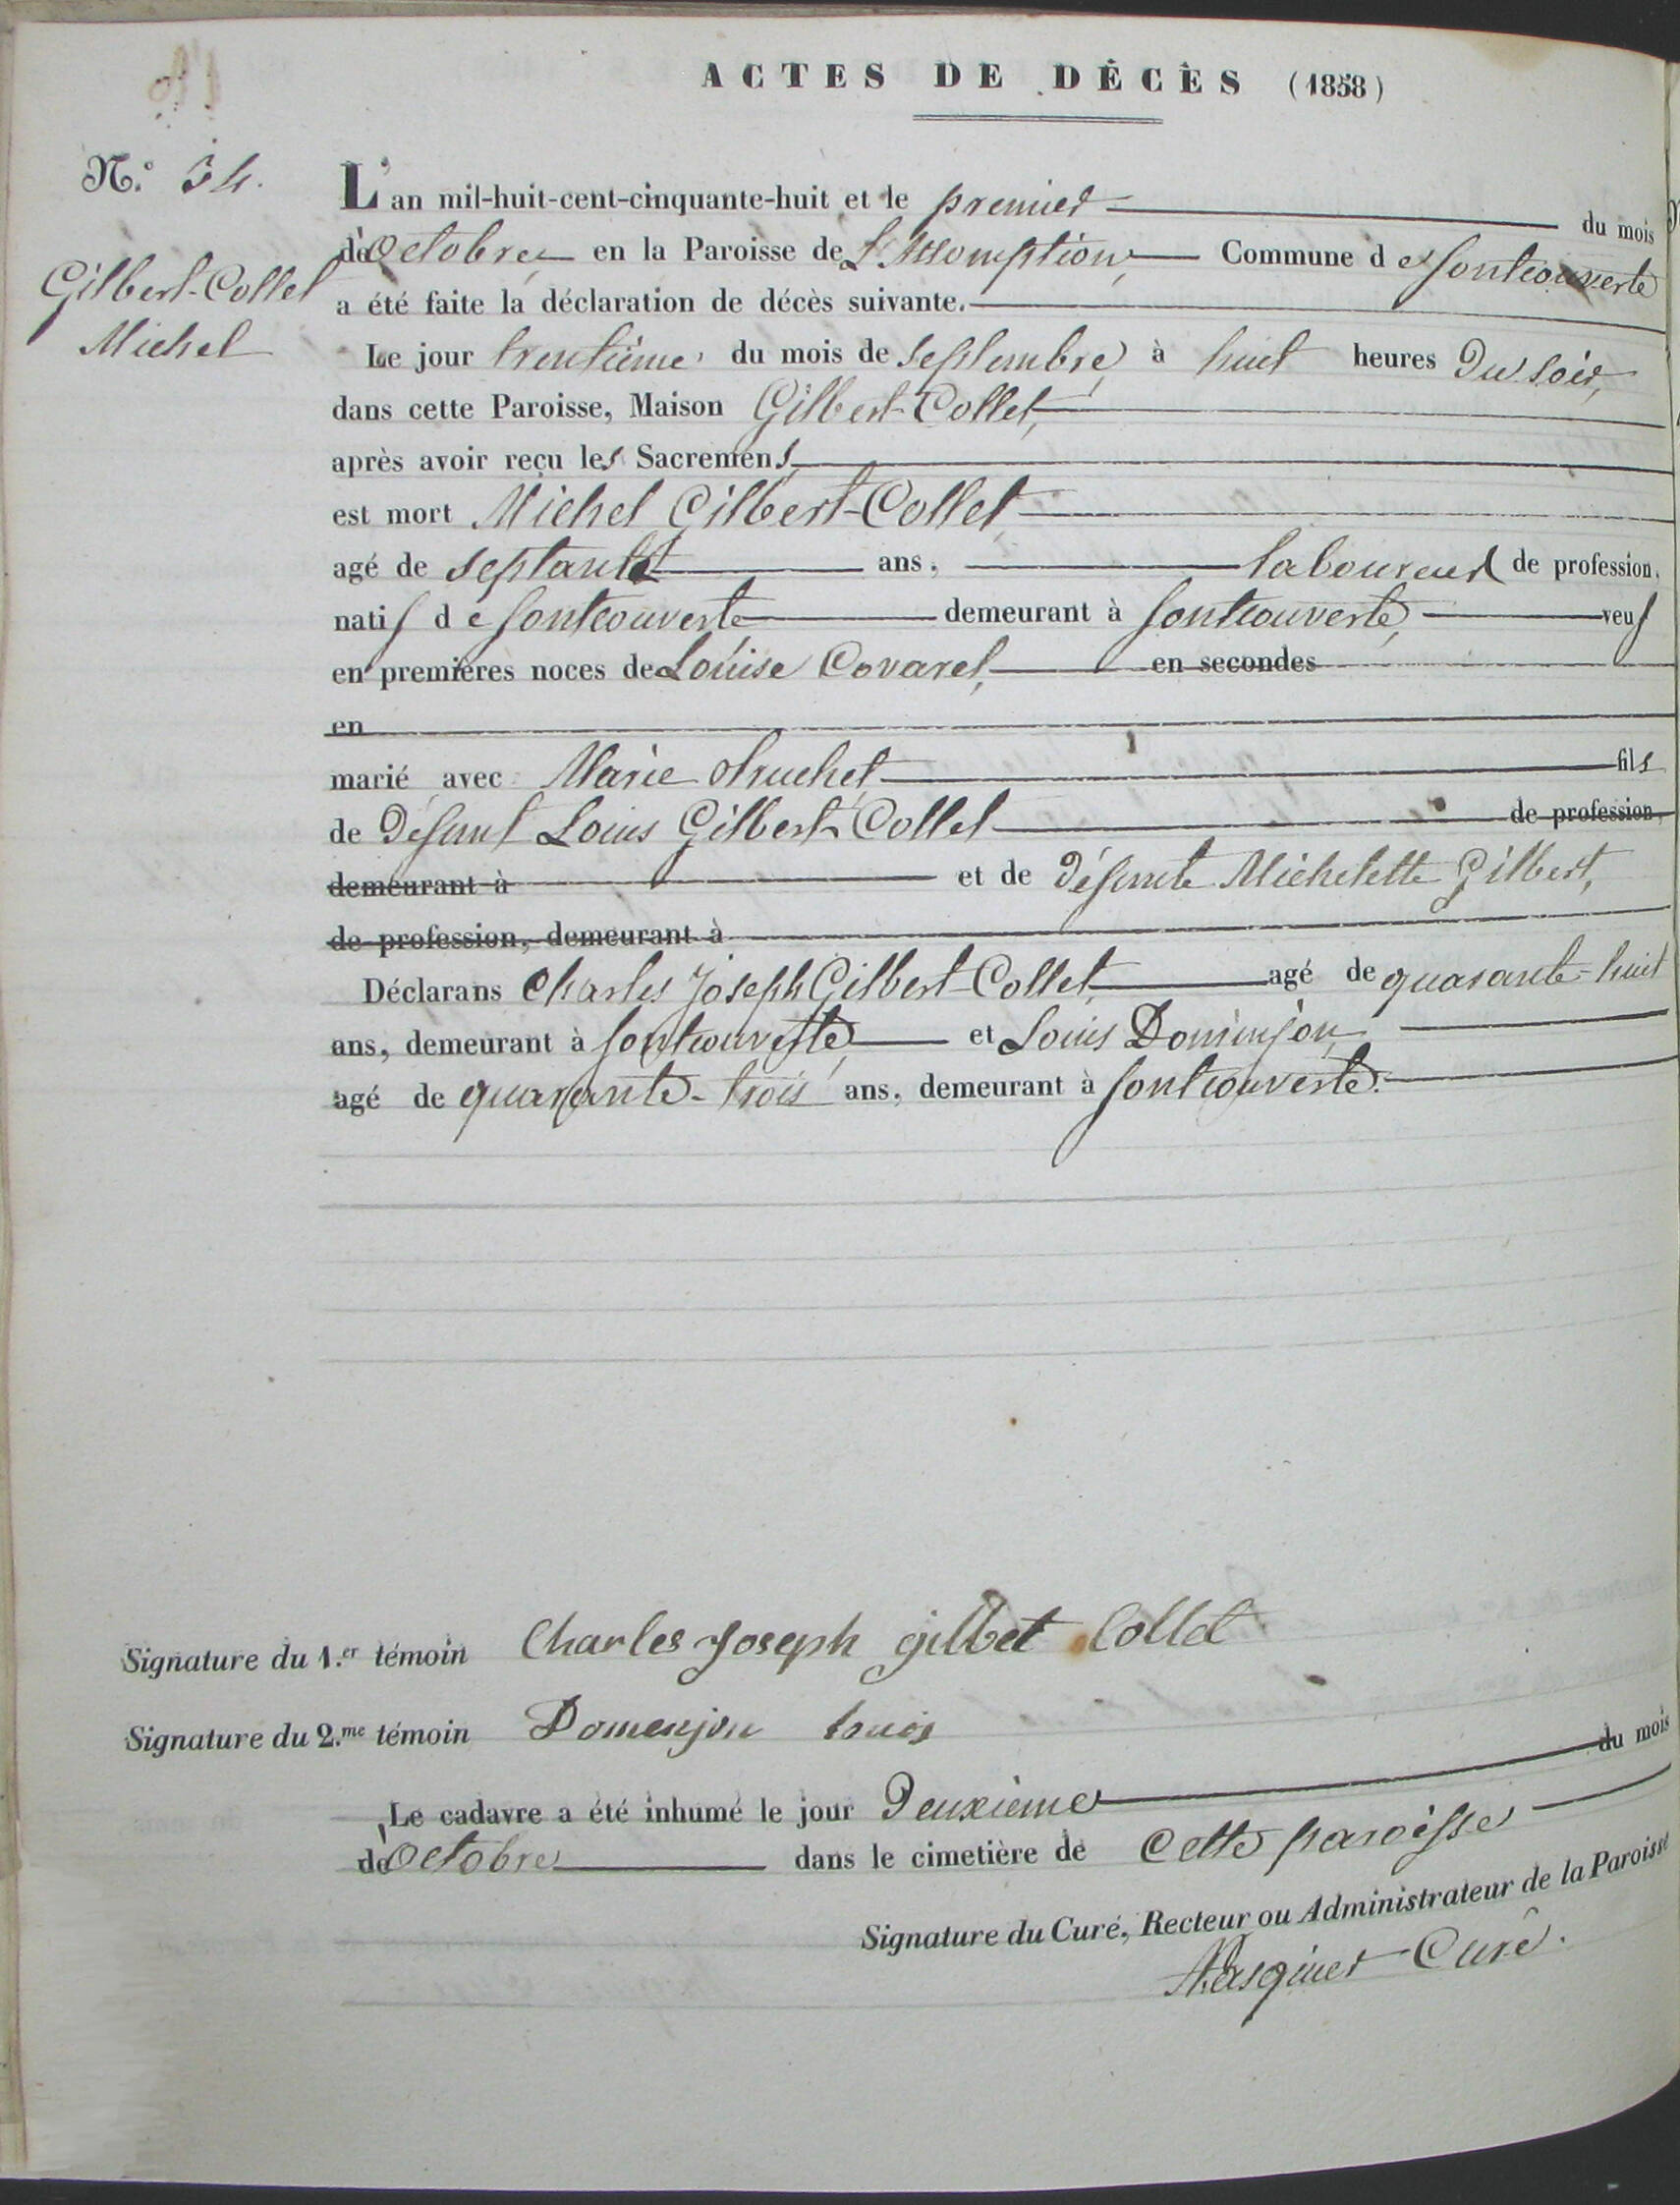 ACTES DE DÉCÈS (1858)
N.° 34.
Gilbert-Collet
Michel
L'an mil-huit-cent-cinquante-huit et le premier du mois
d'Octobre, en la Paroisse de L'Assomption, Commune de fontcouverte
a été faite la déclaration de décès suivante.
Le jour trentième du mois de septembre, à huit heures du soir,
dans cette Paroisse, Maison Gilbert-Collet,
après avoir reçu les Sacremens
est mort Michel Gilbert-Collet
agé de septante ans, laboureur de profession,
natif de fontcouverte demeurant à fontcouverte, veuf
en premières noces de Louise Covarel, en secondes
en
marié avec Marie Truchet fils
de défunt Louis Gilbert-Collet de profession,
demeurant à et de défunte Michelette Gilbert,
de profession, demeurant à
Déclarans Charles Joseph Gilbert-Collet, agé de quarante-huit
ans, demeurant à fontcouverte et Louis Dominjon,
agé de quarante-trois ans, demeurant à fontcouverte.
Signature du 1.er témoin Charles Joseph gilbet Collet
Signature du 2.me témoin Domenjon Louis
Le cadavre a été inhumé le jour Deuxième du mois
d'Octobre dans le cimetière de cette paroisse
Signature du Curé, Recteur ou Administrateur de la Paroisse
Curé.